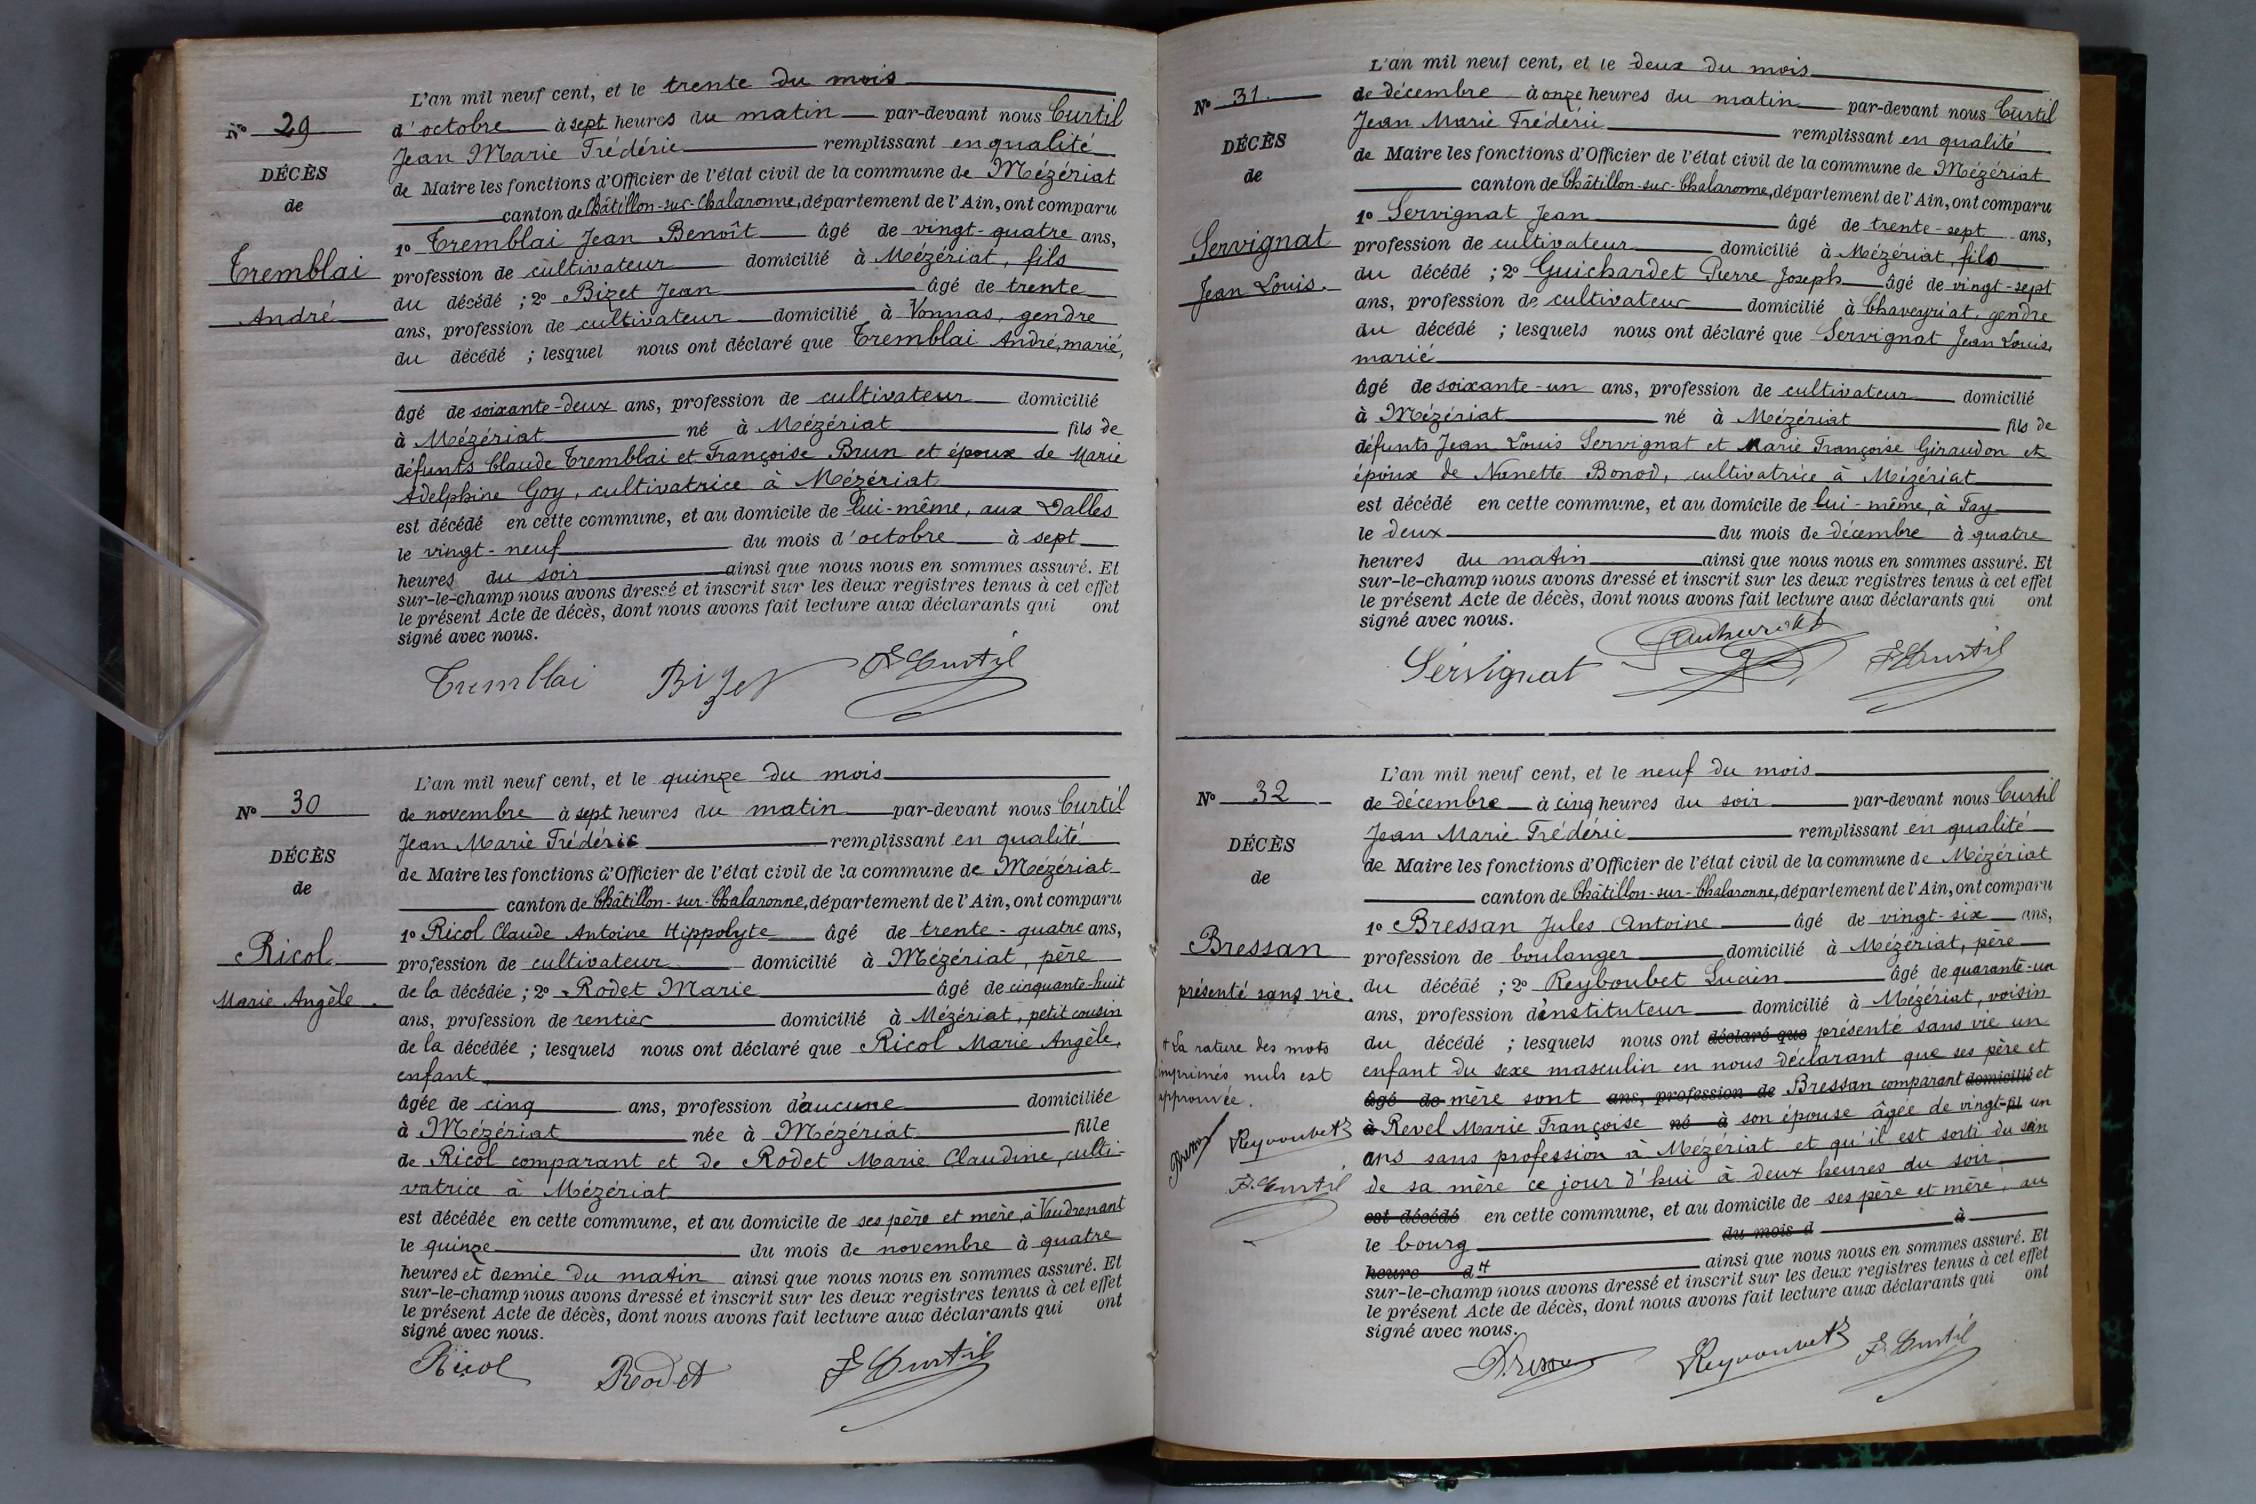 N° 29
DÉCÈS
de
Tremblai
André
L'an mil neuf cent, et le trente du mois
d'octobre à sept heures du matin par-devant nous Curtil
Jean Marie Frédéric remplissant en qualité
de Maire les fonctions d'Officier de l'état civil de la commune de Mézériat
canton de Châtillon-sur-Chalaronne, département de l'Ain, ont comparu
1° Tremblai Jean Benoît âgé de vingt-quatre ans,
profession de cultivateur domicilié à Mézériat, fils
du décédé ; 2° Bizet Jean âgé de trente
ans, profession de cultivateur domicilié à Vonnas, gendre
du décédé ; lesquel nous ont déclaré que Tremblai André, marié,
âgé de soixante-deux ans, profession de cultivateur domicilié
à Mézériat né à Mézériat fils de
défunts Claude Tremblai et Françoise Brun et époux de Marie
Adelphine Goy, cultivatrice à Mézériat
est décédé en cette commune, et au domicile de lui-même, aux Dalles
le vingt-neuf du mois d'octobre à sept
heures du soir ainsi que nous nous en sommes assuré. Et
sur-le-champ nous avons dressé et inscrit sur les deux registres tenus à cet effet
le présent Acte de décès, dont nous avons fait lecture aux déclarants qui ont
signé avec nous.
Tremblai Bizet F Curtil
N° 30
DÉCÈS
de
Ricol
Marie Angèle.
L'an mil neuf cent, et le quinze du mois
de novembre à sept heures du matin par-devant nous Curtil
Jean Marie Frédéric remplissant en qualité
de Maire les fonctions d'Officier de l'état civil de la commune de Mézériat
canton de Châtillon-sur-Chalaronne, département de l'Ain, ont comparu
1° Ricol Claude Antoine Hippolyte âgé de trente-quatre ans,
profession de cultivateur domicilié à Mézériat, père
de la décédée ; 2° Rodet Marie âgé de cinquante-huit
ans, profession de rentier domicilié à Mézériat, petit cousin
de la décédée ; lesquels nous ont déclaré que Ricol Marie Angèle,
enfant
âgée de cinq ans, profession d'aucune domiciliée
à Mézériat née à Mézériat fille
de Ricol comparant et de Rodet Marie Claudine, culti-
vatrice à Mézériat
est décédée en cette commune, et au domicile de ses père et mère, à Vaudrenant
le quinze du mois de novembre à quatre
heures et demie du matin ainsi que nous nous en sommes assuré. Et
sur-le-champ nous avons dressé et inscrit sur les deux registres tenus à cet effet
le présent Acte de décès, dont nous avons fait lecture aux déclarants qui ont
signé avec nous.
Ricol Rodet F Curtil
N° 31.
DÉCÈS
de
Servignat
Jean Louis.
L'an mil neuf cent, et le deux du mois
de décembre à onze heures du matin par-devant nous Curtil
Jean Marie Frédéric remplissant en qualité
de Maire les fonctions d'Officier de l'état civil de la commune de Mézériat
canton de Châtillon-sur-Chalaronne, département de l'Ain, ont comparu
1° Servignat Jean âgé de trente-sept ans,
profession de cultivateur domicilié à Mézériat, fils
du décédé ; 2° Guichardet Pierre Joseph âgé de vingt-sept
ans, profession de cultivateur domicilié à Chaveyriat, gendre
du décédé ; lesquels nous ont déclaré que Servignat Jean Louis,
marié
âgé de soixante-un ans, profession de cultivateur domicilié
à Mézériat né à Mézériat fils de
défunts Jean Louis Servignat et Marie Françoise Giraudon et
époux de Nanette Bonod, cultivatrice à Mézériat
est décédé en cette commune, et au domicile de lui-même, à Fay
le deux du mois de décembre à quatre
heures du matin ainsi que nous nous en sommes assuré. Et
sur-le-champ nous avons dressé et inscrit sur les deux registres tenus à cet effet
le présent Acte de décès, dont nous avons fait lecture aux déclarants qui ont
signé avec nous.
Servignat F Curtil
N° 32
DÉCÈS
de
Bressan
présenté sans vie.
+ La rature des mots
imprimés nuls est
approuvée.
Reyboubet
F. Curtil
L'an mil neuf cent, et le neuf du mois
de décembre à cinq heures du soir par-devant nous Curtil
Jean Marie Frédéric remplissant en qualité
de Maire les fonctions d'Officier de l'état civil de la commune de Mézériat
canton de Châtillon-sur-Chalaronne, département de l'Ain, ont comparu
1° Bressan Jules Antoine âgé de vingt-six ans,
profession de boulanger domicilié à Mézériat, père
du décédé ; 2° Reyboubet Lucien âgé de quarante-un
ans, profession d'instituteur domicilié à Mézériat, voisin
du décédé ; lesquels nous ont déclaré que présenté sans vie un
enfant du sexe masculin en nous déclarant que ses père et
âgé de mère sont ans, profession de Bressan comparant domicilié et
à Revel Marie Françoise né à son épouse âgée de vingt-fil un
ans sans profession à Mézériat et qu'il est sorti du sein
de sa mère ce jour d'hui à deux heures du soir
est décédé en cette commune, et au domicile de ses père et mère, au
le bourg du mois d à
heure d + ainsi que nous nous en sommes assuré. Et
sur-le-champ nous avons dressé et inscrit sur les deux registres tenus à cet effet
le présent Acte de décès, dont nous avons fait lecture aux déclarants qui ont
signé avec nous.
Reyboubet F. Curtil